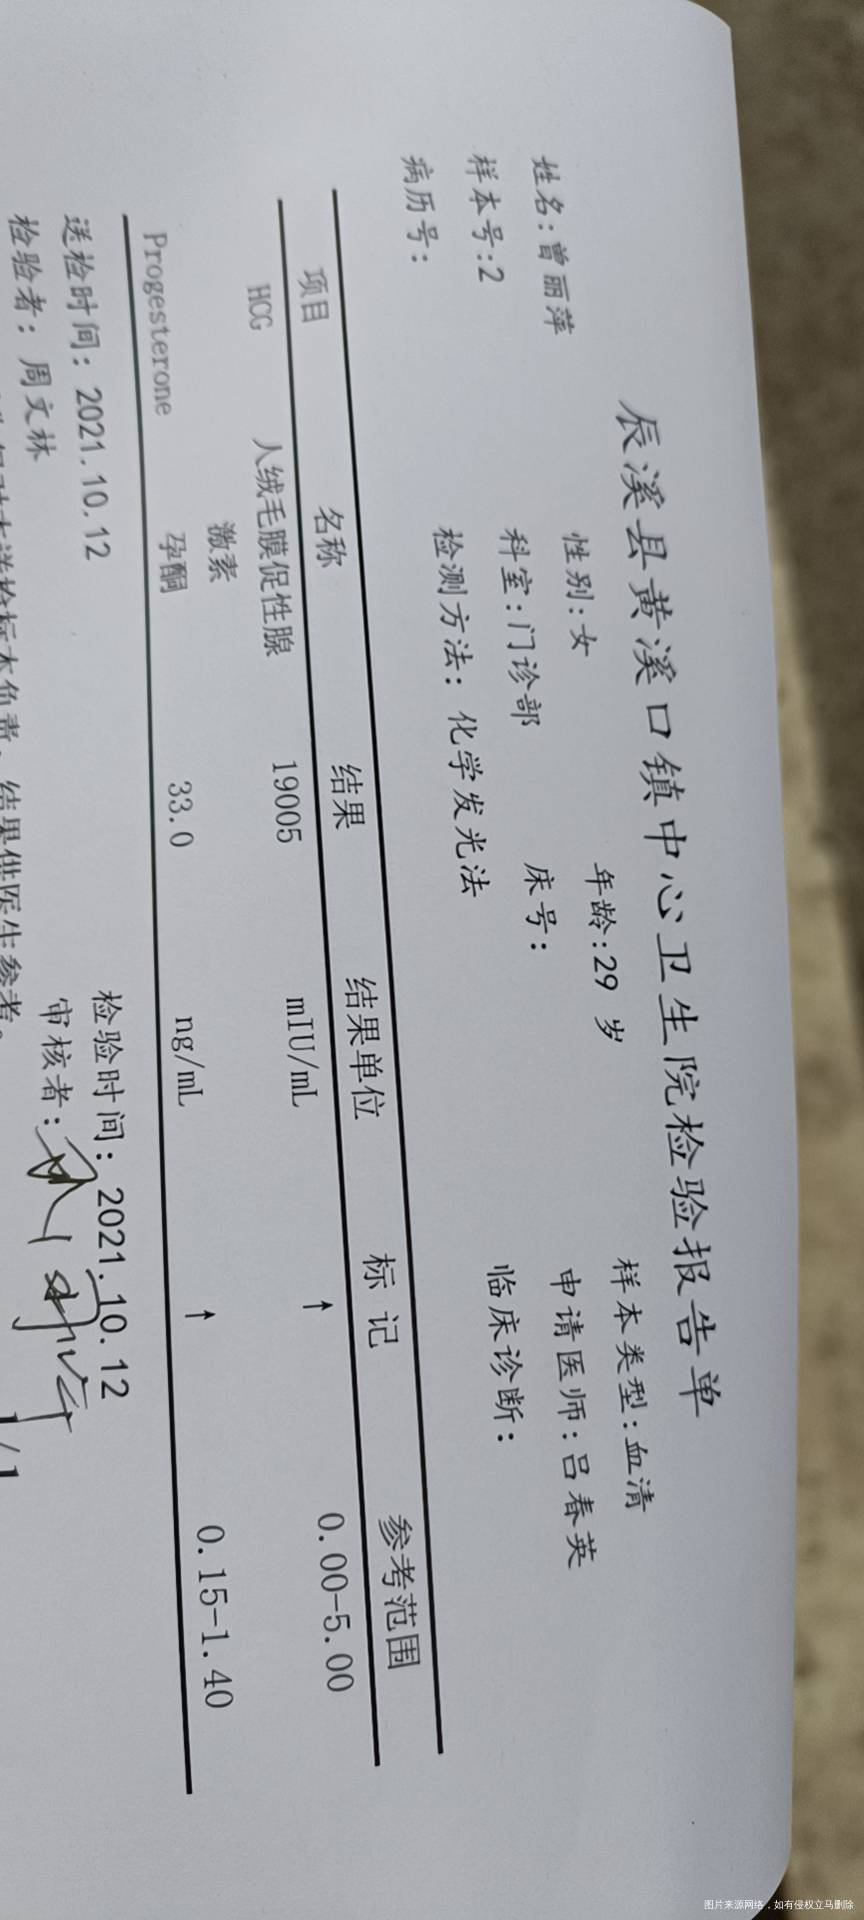 辰溪县黄溪口镇中心卫生院检验报告单
姓名:曾丽萍 性别:女 年龄:29 岁 样本类型:血清
样本号:2 科室:门诊部 床号: 申请医师:吕春英
病历号: 检测方法: 化学发光法 临床诊断:
项目 名称 结果 结果单位 标 记 参考范围
HCG 人绒毛膜促性腺 19005 mIU/mL ↑ 0.00-5.00
激素
Progesterone 孕酮 33.0 ng/mL ↑ 0.15-1.40
送检时间: 2021.10.12 检验时间: 2021.10.12
检验者: 周文林 审核者:
对本送检标本负责, 结果供医生参考。
1/1
图片来源网络，如有侵权立马删除